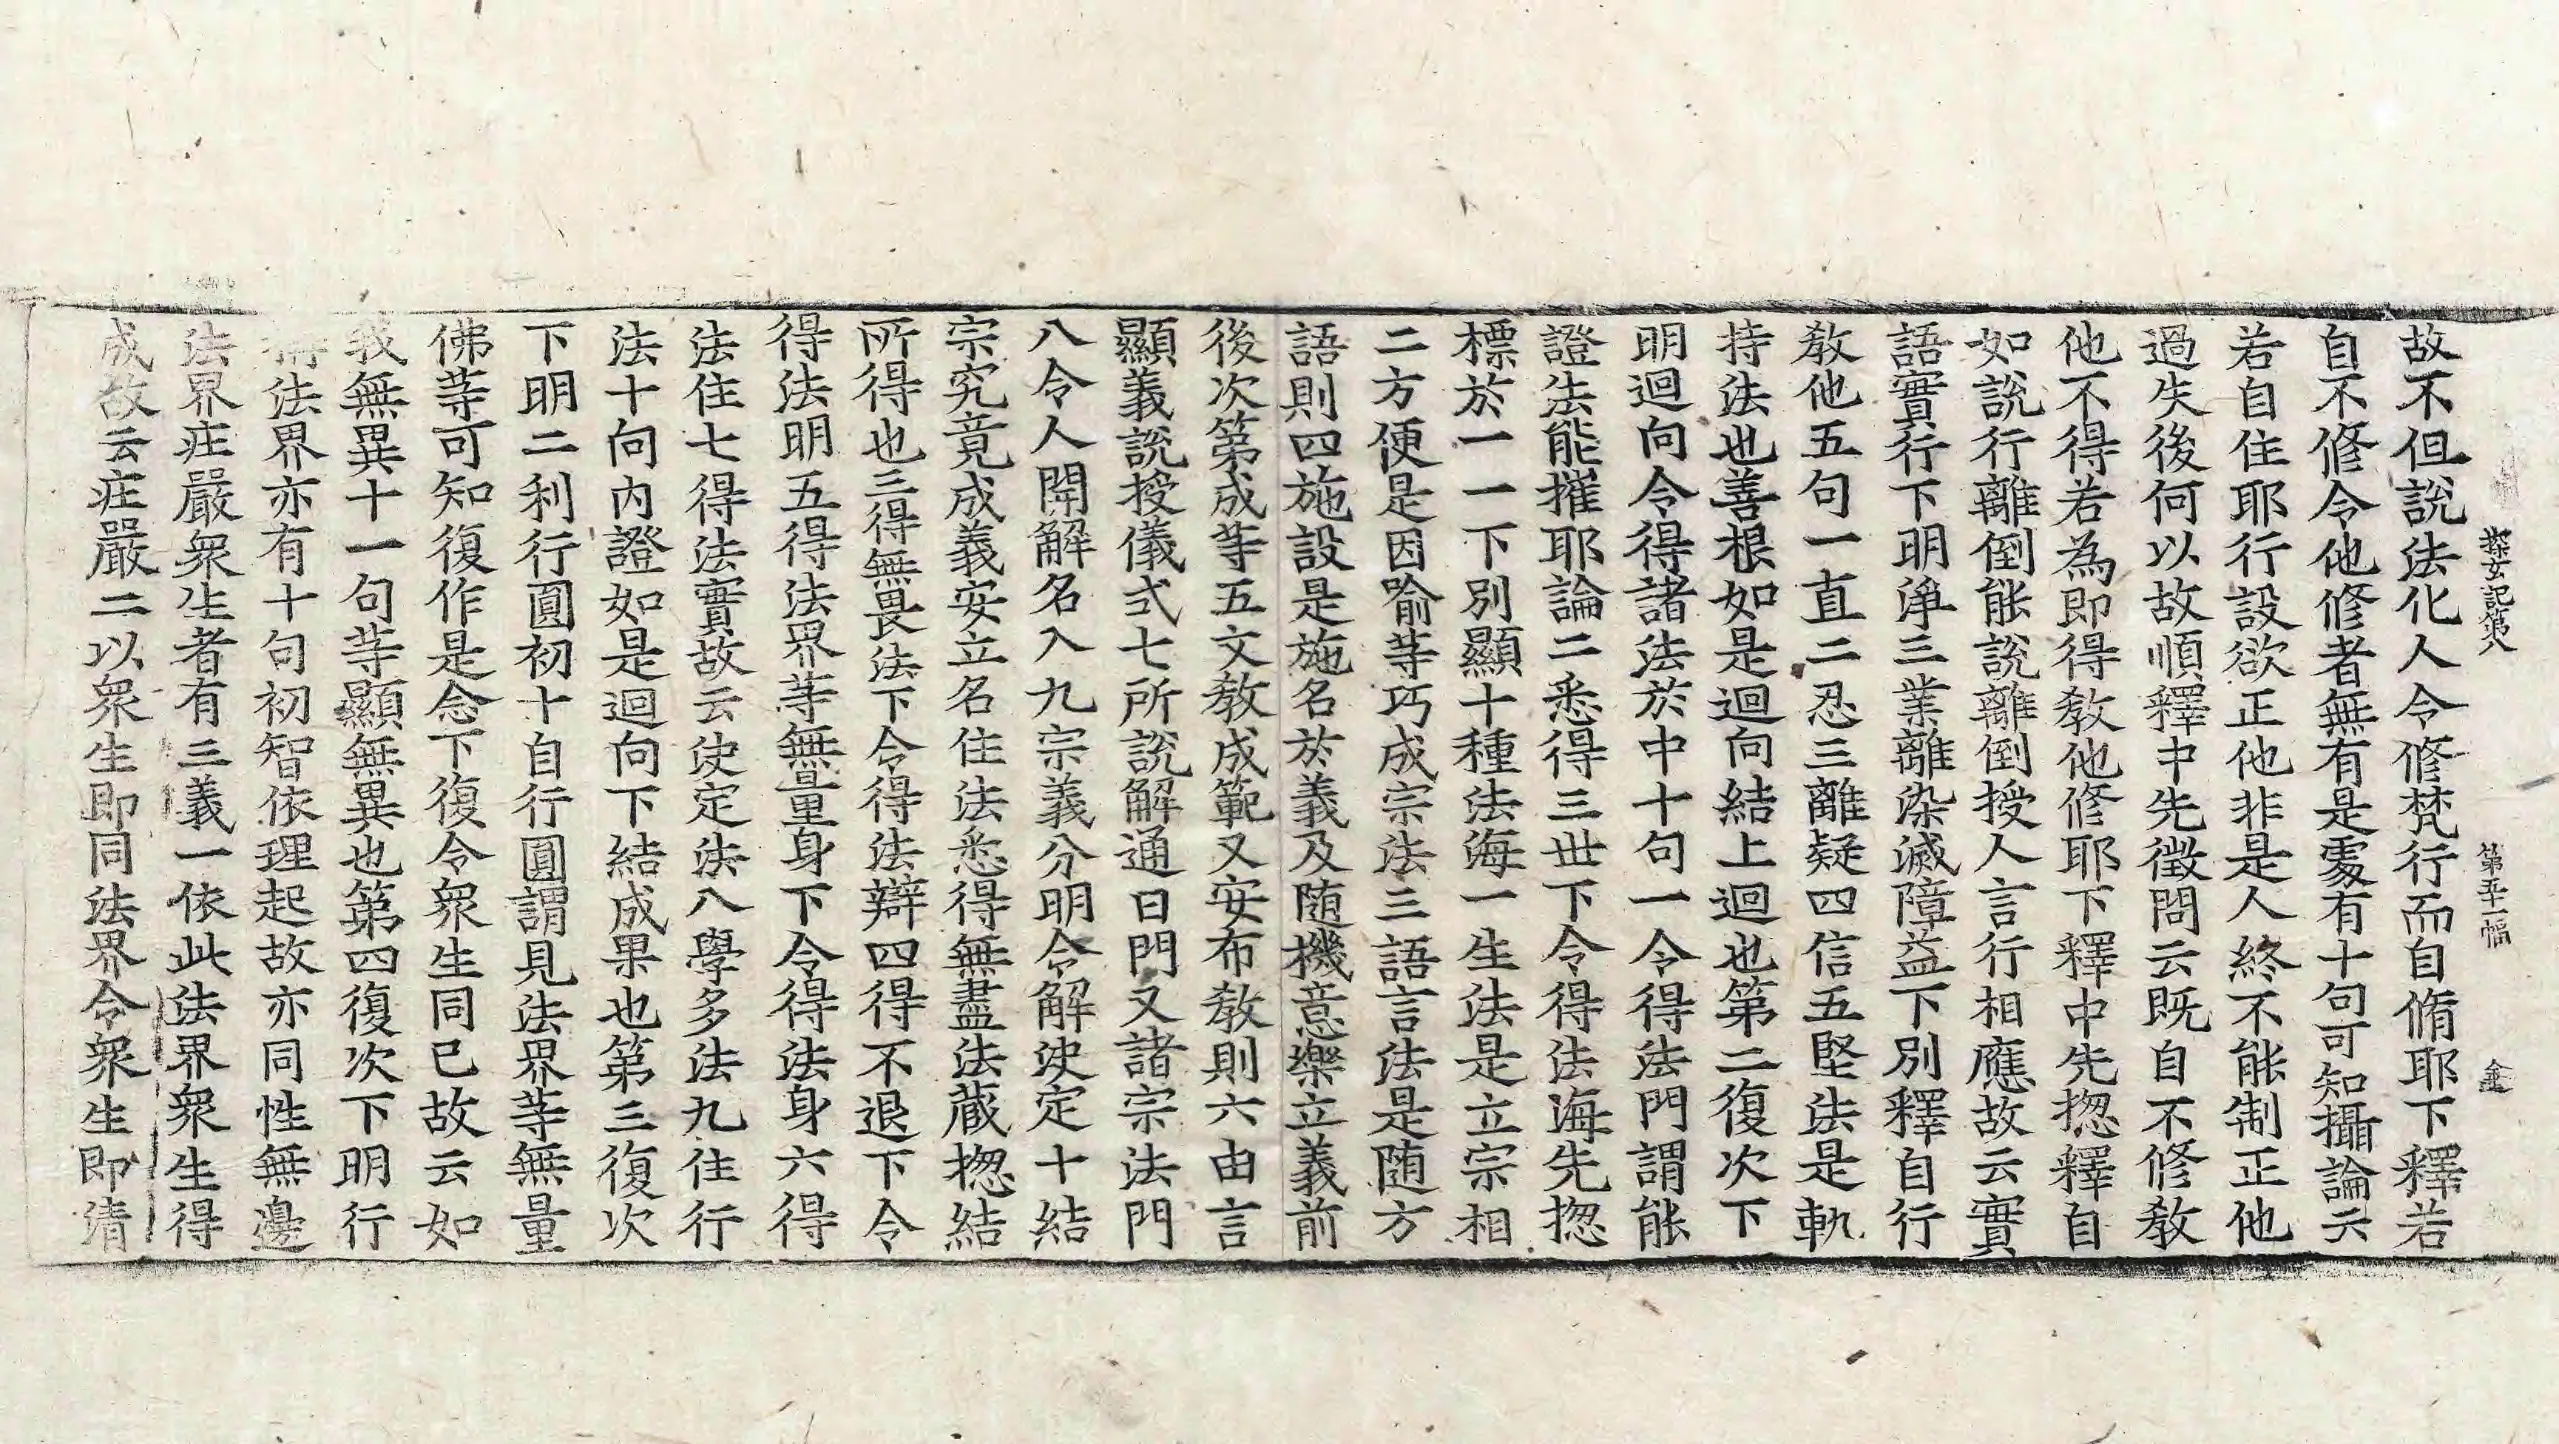 探玄記第八 第五十一幅 金
故不但說法化人令修梵行而自脩耶下釋若
自不修令他修者無有是處有十句可知攝論云
若自住耶行設欲正他非是人終不能制正他
過失後何以故順釋中先徵問云既自不修教
他不得若為即得教他修耶下釋中先捴釋自
如說行離倒能說離倒授人言行相應故云實
語實行下明淨三業離染滅障益下別釋自行
教他五句一直二忍三離疑四信五堅法是軌
持法也善根如是迴向結上迴也第二復次下
明迴向令得諸法於中十句一令得法門謂能
證法能摧耶論二悉得三世下令得法海先捴
標於一一下別顯十種法海一生法是立宗相
二方便是因喻䓁巧成宗法三語言法是随方
語則四施設是施名於義及随機意樂立義前
後次第成䓁五文教成範又安布教則六由言
顯義說授儀式七所說解通曰門又諸宗法門
八令人開解名入九宗義分明令解决定十結
宗究竟成義安立名住法悉得無盡法蔵捴結
所得也三得無畏法下令得法辯四得不退下令
得法明五得法界䓁無量身下令得法身六得
法住七得法實故云决定法八學多法九住行
法十向內證如是迴向下結成果也第三復次
下明二利行圓初十自行圓謂見法界䓁無量
佛䓁可知復作是念下復令衆生同已故云如
我無異十一句䓁顯無異也第四復次下明行
稱法界亦有十句初智依理起故亦同性無邊
法界疘嚴衆生者有三義一依此法界衆生得
成故云疘嚴二以衆生即同法界令衆生即清